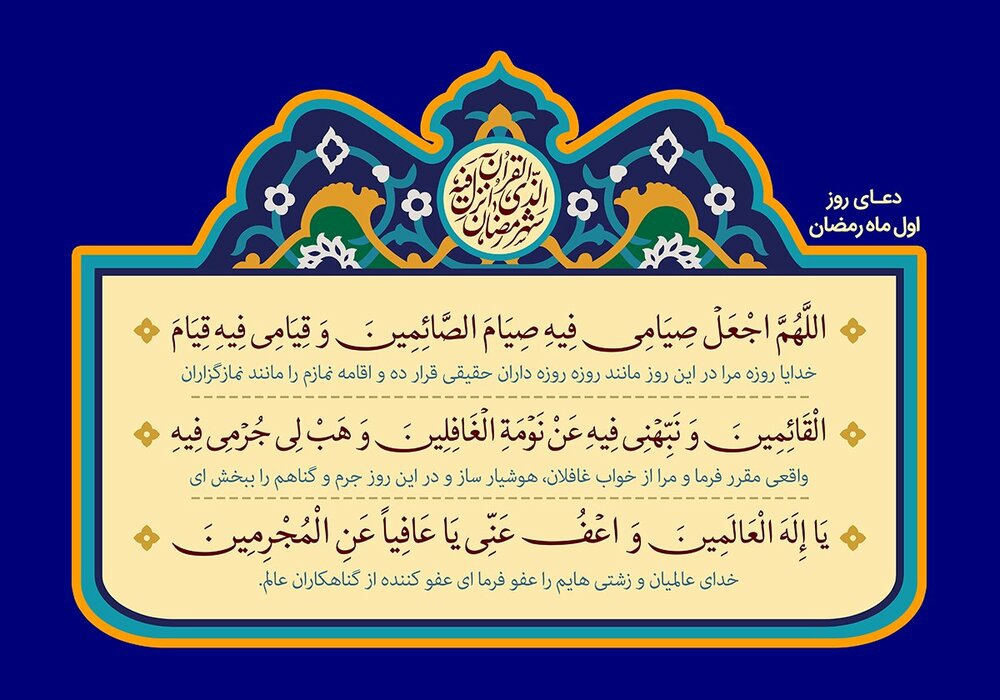 شهر رمضان
الذی انزل فیه
القرآن
دعای روز
اول ماه رمضان
اللَّهُمَّ اجْعَلْ صِيَامِي فِيهِ صِيَامَ الصَّائِمِينَ وَ قِيَامِي فِيهِ قِيَامَ
خدایا روزه مرا در این روز مانند روزه روزه داران حقیقی قرار ده و اقامه نمازم را مانند نمازگزاران
الْقَائِمِينَ وَ نَبِّهْنِي فِيهِ عَنْ نَوْمَةِ الْغَافِلِينَ وَ هَبْ لِي جُرْمِي فِيهِ
واقعی مقرر فرما و مرا از خواب غافلان، هوشیار ساز و در این روز جرم و گناهم را ببخش ای
يَا إِلَهَ الْعَالَمِينَ وَ اعْفُ عَنِّي يَا عَافِياً عَنِ الْمُجْرِمِينَ
خدای عالمیان و زشتی هایم را عفو فرما ای عفو کننده از گناهکاران عالم.